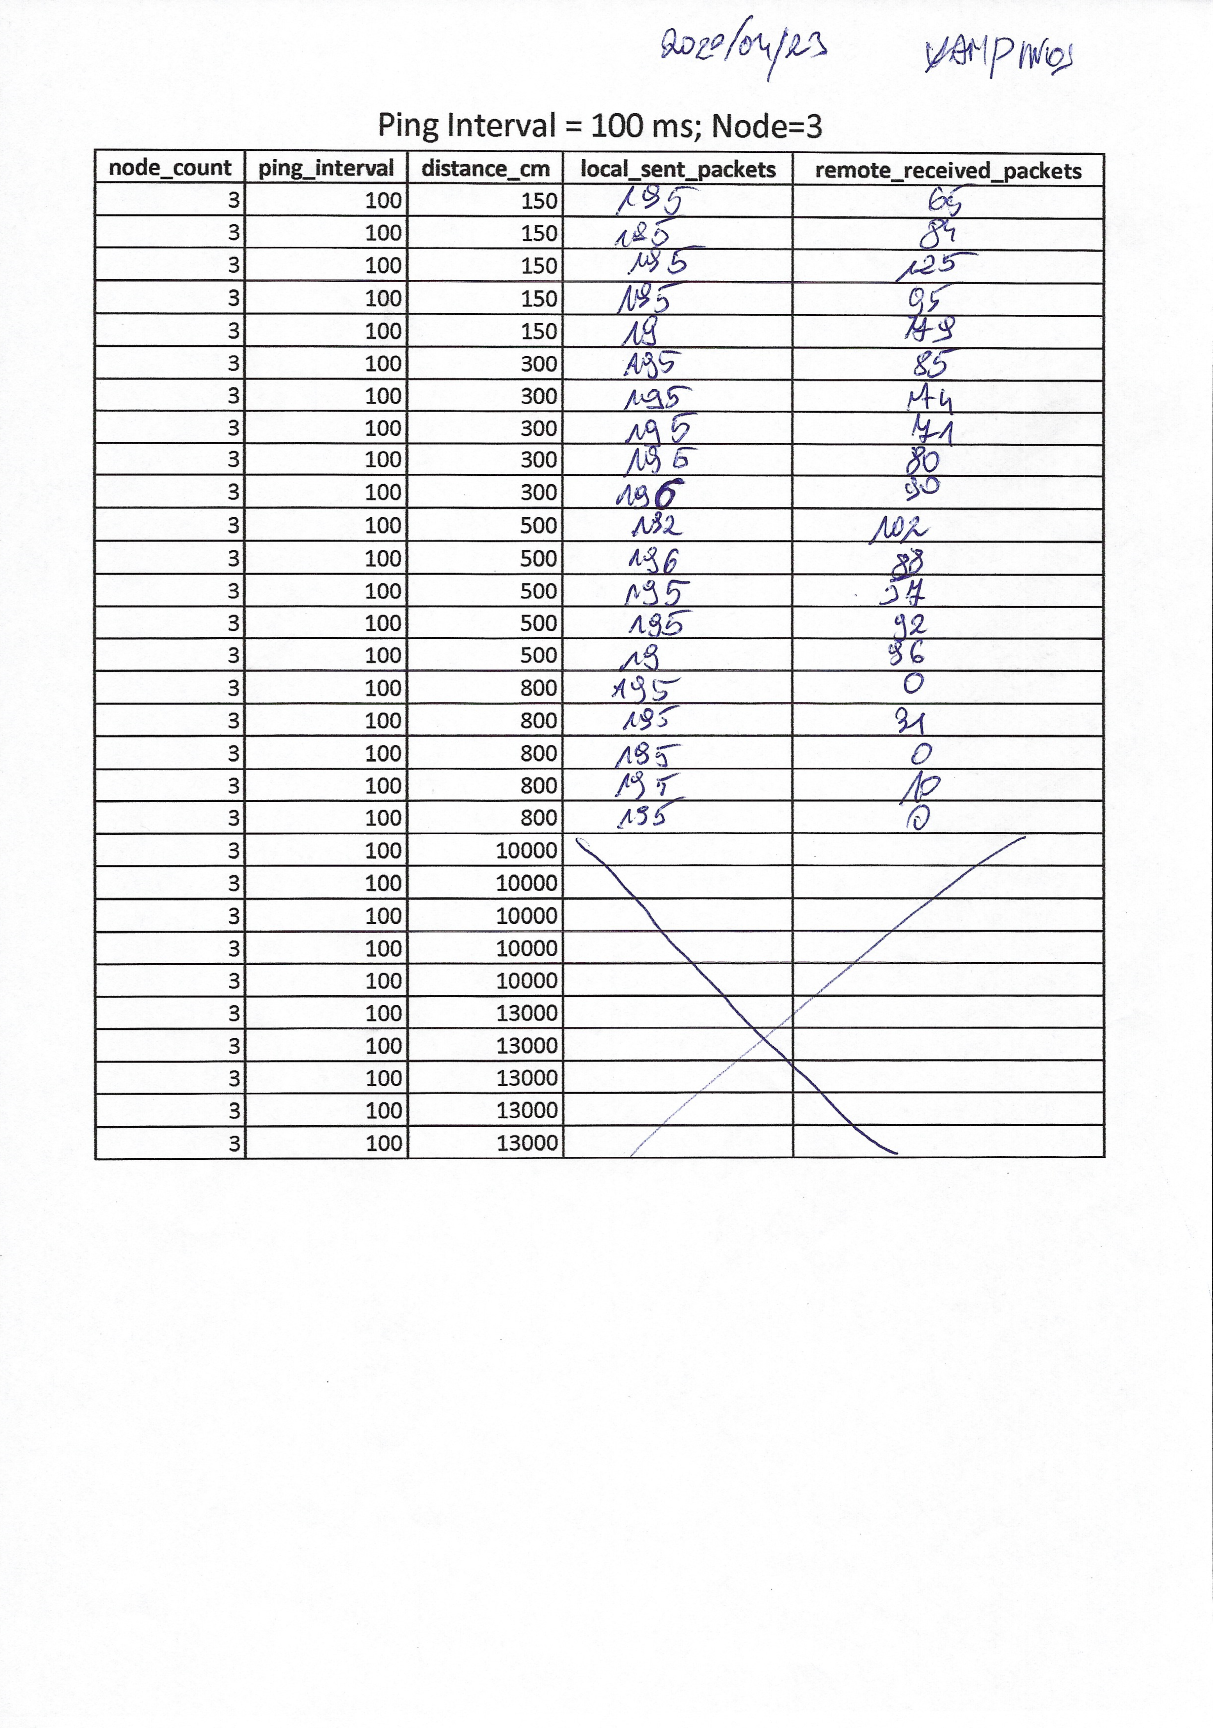 2020/04/23 VAMPINOS
Ping Interval = 100 ms; Node=3
node_count ping_interval distance_cm local_sent_packets remote_received_packets
3 100 150 195 65
3 100 150 195 84
3 100 150 195 125
3 100 150 195 95
3 100 150 19 79
3 100 300 195 85
3 100 300 195 74
3 100 300 195 71
3 100 300 195 80
3 100 300 196 90
3 100 500 192 102
3 100 500 196 88
3 100 500 195 97
3 100 500 195 92
3 100 500 19 96
3 100 800 195 0
3 100 800 195 31
3 100 800 195 0
3 100 800 195 10
3 100 800 195 0
3 100 10000
3 100 10000
3 100 10000
3 100 10000
3 100 10000
3 100 13000
3 100 13000
3 100 13000
3 100 13000
3 100 13000